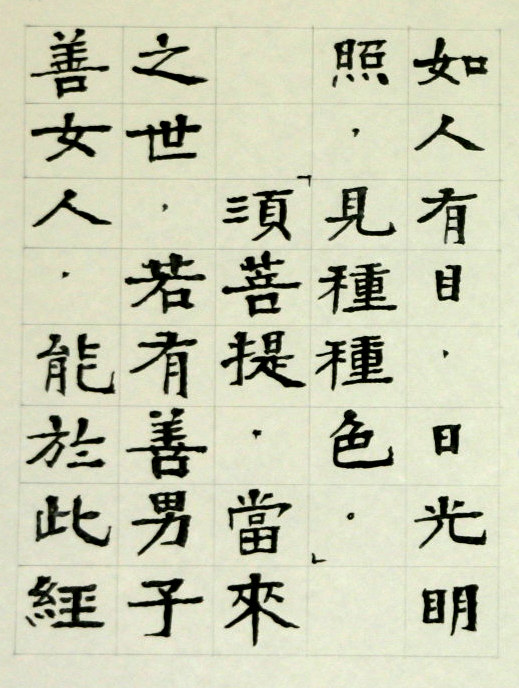 如人有目，日光明
照，見種種色。」
「須菩提，當來
之世，若有善男子
善女人，能於此經